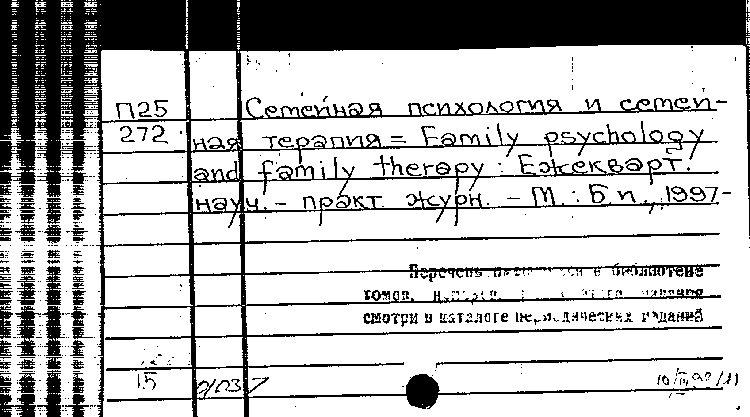 П25 Семейная психология и семей-
272 ная терапия = Family psychology
and family therapy : Ежекварт.
науч. - практ. журн. - М. : Б и., 1997-
Перечень в библиотеке
томов,
смотри в каталоге периодических изданий
15